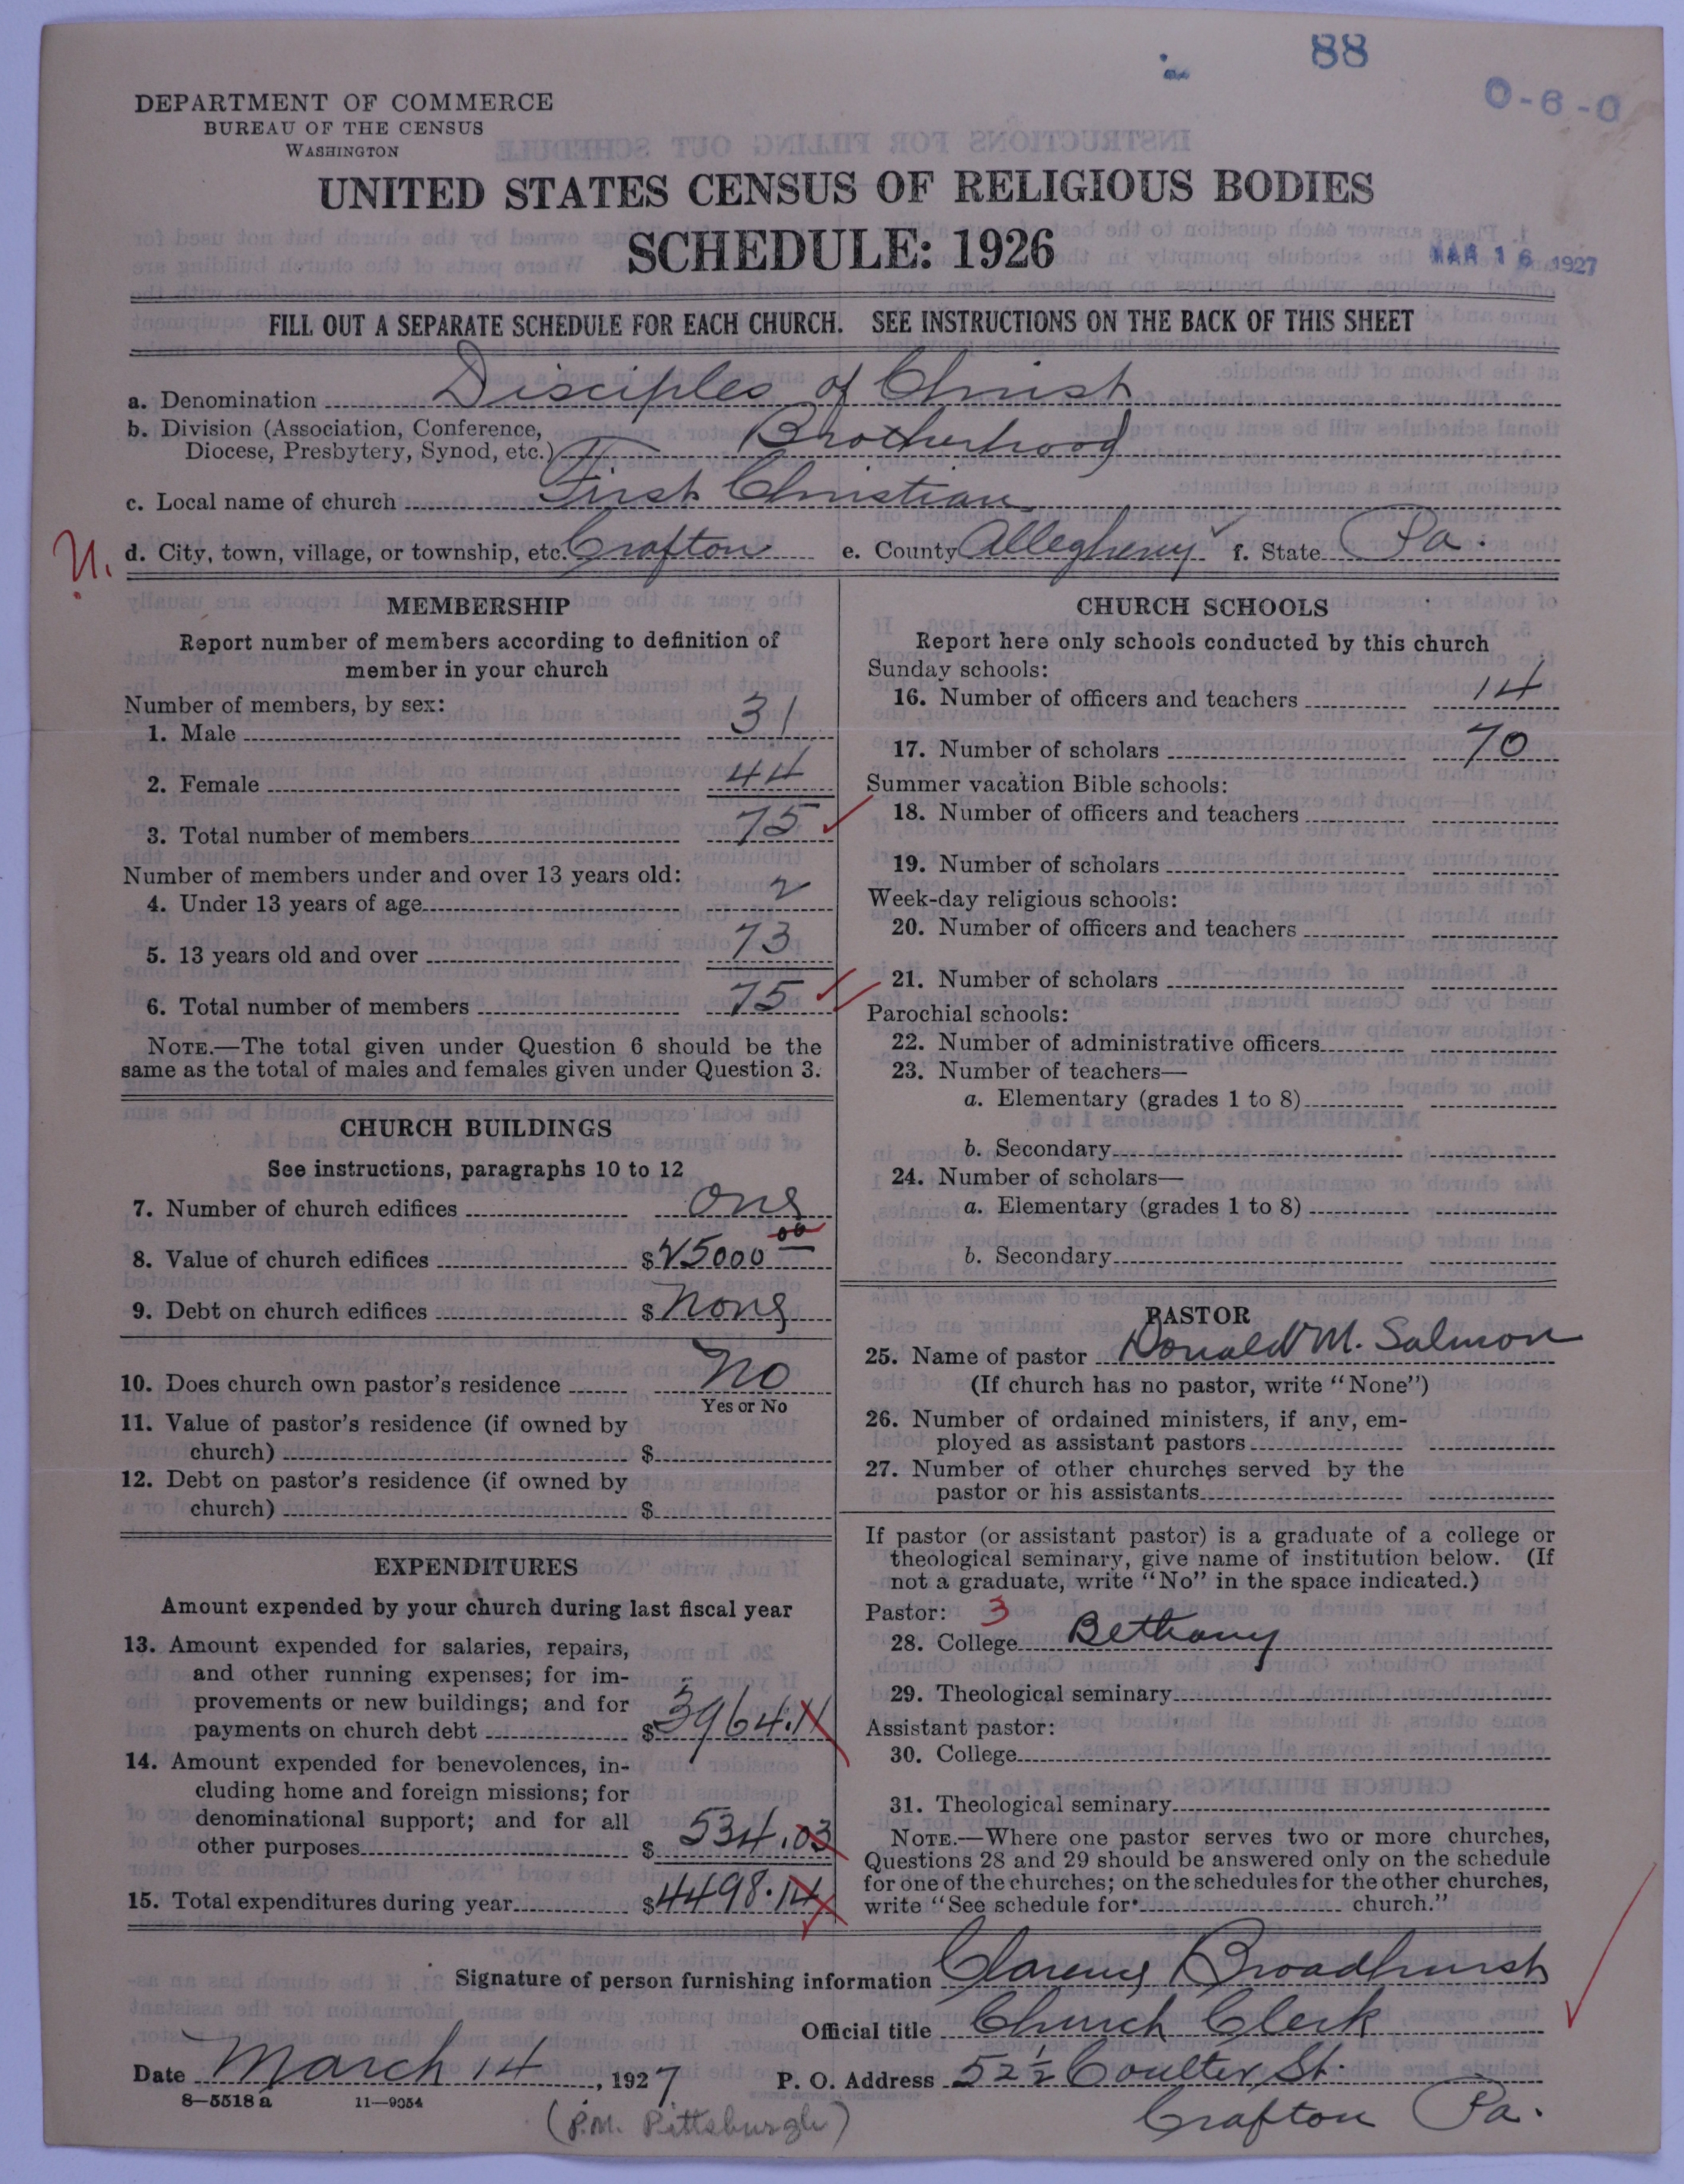 88
0-6-0
DEPARTMENT OF COMMERCE
BUREAU OF THE CENSUS
WASHINGTON
UNITED STATES CENSUS OF RELIGIOUS BODIES
SCHEDULE: 1926
MAR 16 1927
FILL OUT A SEPARATE SCHEDULE FOR EACH CHURCH. SEE INSTRUCTIONS ON THE BACK OF THIS SHEET
a. Denomination Disciples of Christ
b. Division (Association, Conference,
Diocese, Presbytery, Synod, etc.) Brotherhood
c. Local name of church First Christian
d. City, town, village, or township, etc. Crafton e. County Allegheny f. State Pa.
MEMBERSHIP
Report number of members according to definition of
member in your church
Number of members, by sex:
1. Male 31
2. Female 44
3. Total number of members 75
Number of members under and over 13 years old:
4. Under 13 years of age 2
5. 13 years old and over 73
6. Total number of members 75
NOTE.—The total given under Question 6 should be the
same as the total of males and females given under Question 3.
CHURCH BUILDINGS
See instructions, paragraphs 10 to 12
7. Number of church edifices one
8. Value of church edifices $ 25000 00
9. Debt on church edifices $ none
10. Does church own pastor's residence no
Yes or No
11. Value of pastor's residence (if owned by
church) $
12. Debt on pastor's residence (if owned by
church) $
EXPENDITURES
Amount expended by your church during last fiscal year
13. Amount expended for salaries, repairs,
and other running expenses; for im-
provements or new buildings; and for
payments on church debt $ 3964.11
14. Amount expended for benevolences, in-
cluding home and foreign missions; for
denominational support; and for all
other purposes $ 534.03
15. Total expenditures during year $ 4498.14
CHURCH SCHOOLS
Report here only schools conducted by this church
Sunday schools:
16. Number of officers and teachers 14
17. Number of scholars 70
Summer vacation Bible schools:
18. Number of officers and teachers
19. Number of scholars
Week-day religious schools:
20. Number of officers and teachers
21. Number of scholars
Parochial schools:
22. Number of administrative officers
23. Number of teachers—
a. Elementary (grades 1 to 8)
b. Secondary
24. Number of scholars—
a. Elementary (grades 1 to 8)
b. Secondary
PASTOR
25. Name of pastor Donald M. Salmon
(If church has no pastor, write "None")
26. Number of ordained ministers, if any, em-
ployed as assistant pastors
27. Number of other churches served by the
pastor or his assistants
If pastor (or assistant pastor) is a graduate of a college or
theological seminary, give name of institution below. (If
not a graduate, write "No" in the space indicated.)
Pastor: 3
28. College Bethany
29. Theological seminary
Assistant pastor:
30. College
31. Theological seminary
NOTE.—Where one pastor serves two or more churches,
Questions 28 and 29 should be answered only on the schedule
for one of the churches; on the schedules for the other churches,
write "See schedule for church."
Signature of person furnishing information Clarence Broadhurst
Official title Church Clerk
Date March 14, 1927 P. O. Address 52½ Coulter St.
8—5518 a 11—9054
(P.M. Pittsburgh) Crafton Pa.